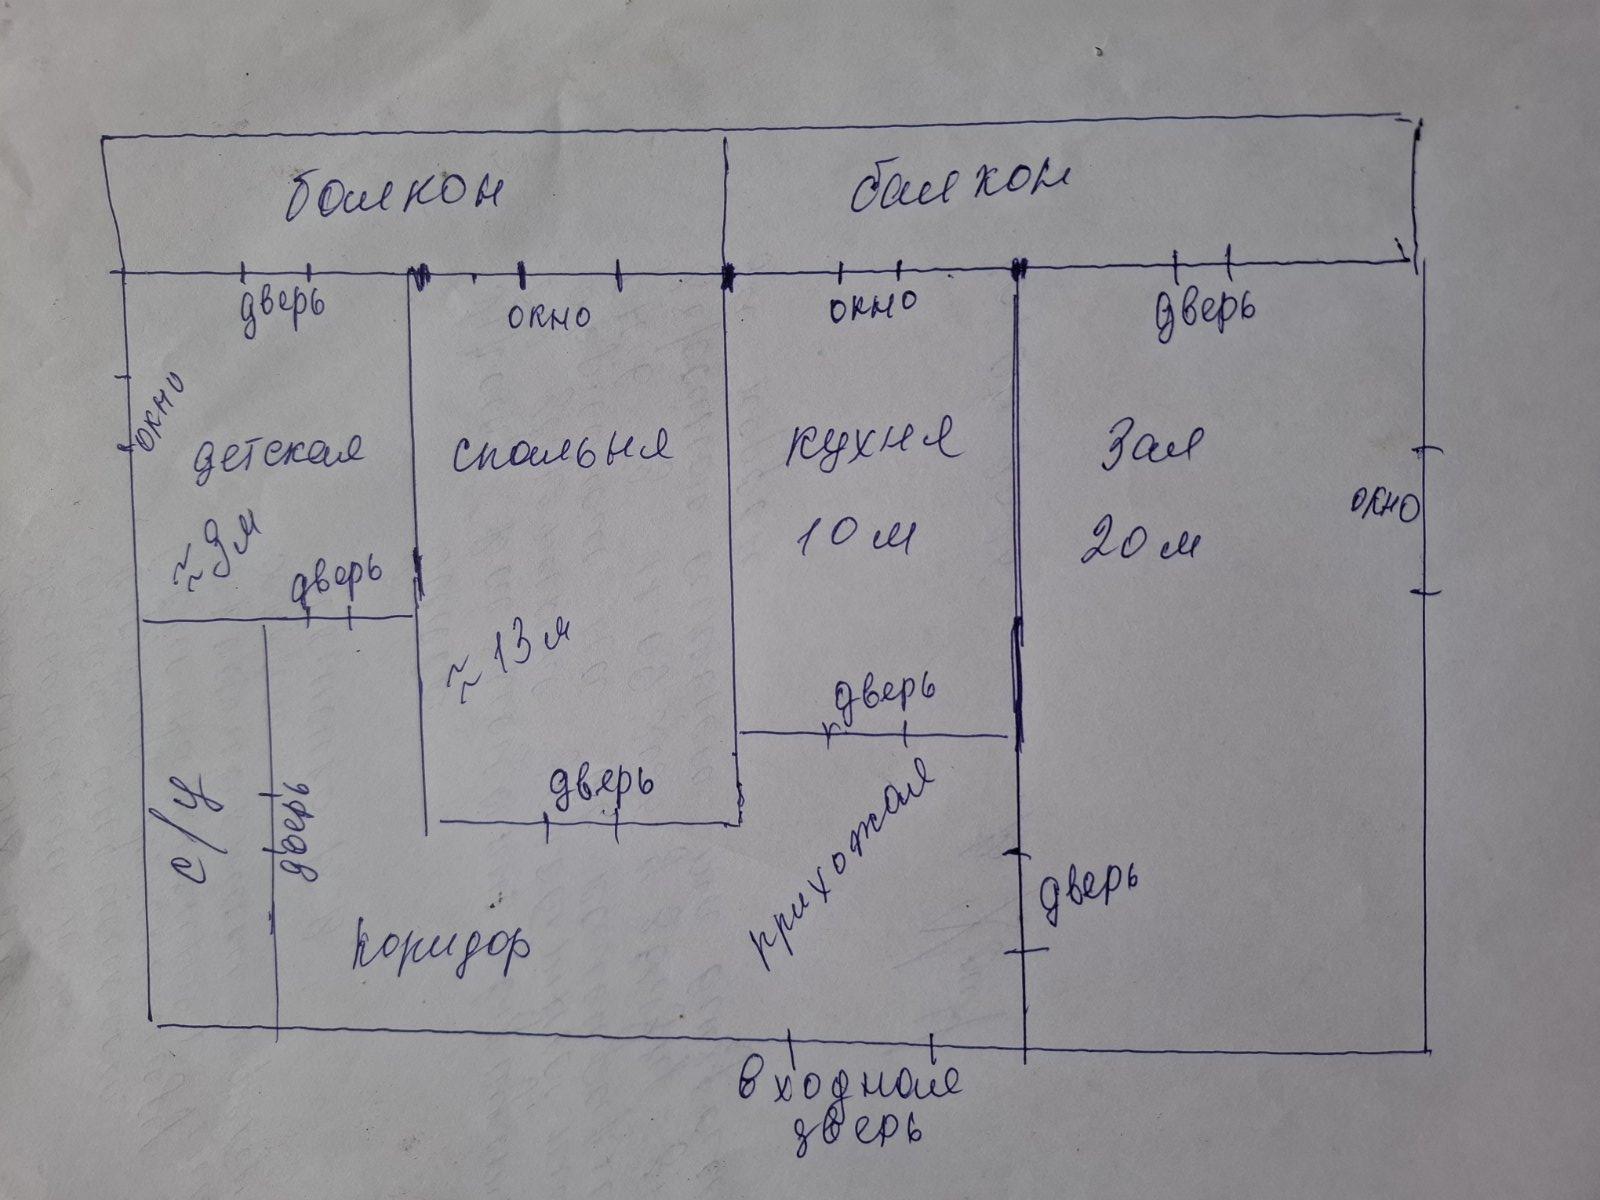 балкон
балкон
дверь
окно
окно
дверь
окно
детская
≈ 9 м
дверь
спальня
≈ 13 м
дверь
кухня
10 м
дверь
Зал
20 м
окно
с/у
дверь
коридор
прихожая
дверь
входная
дверь